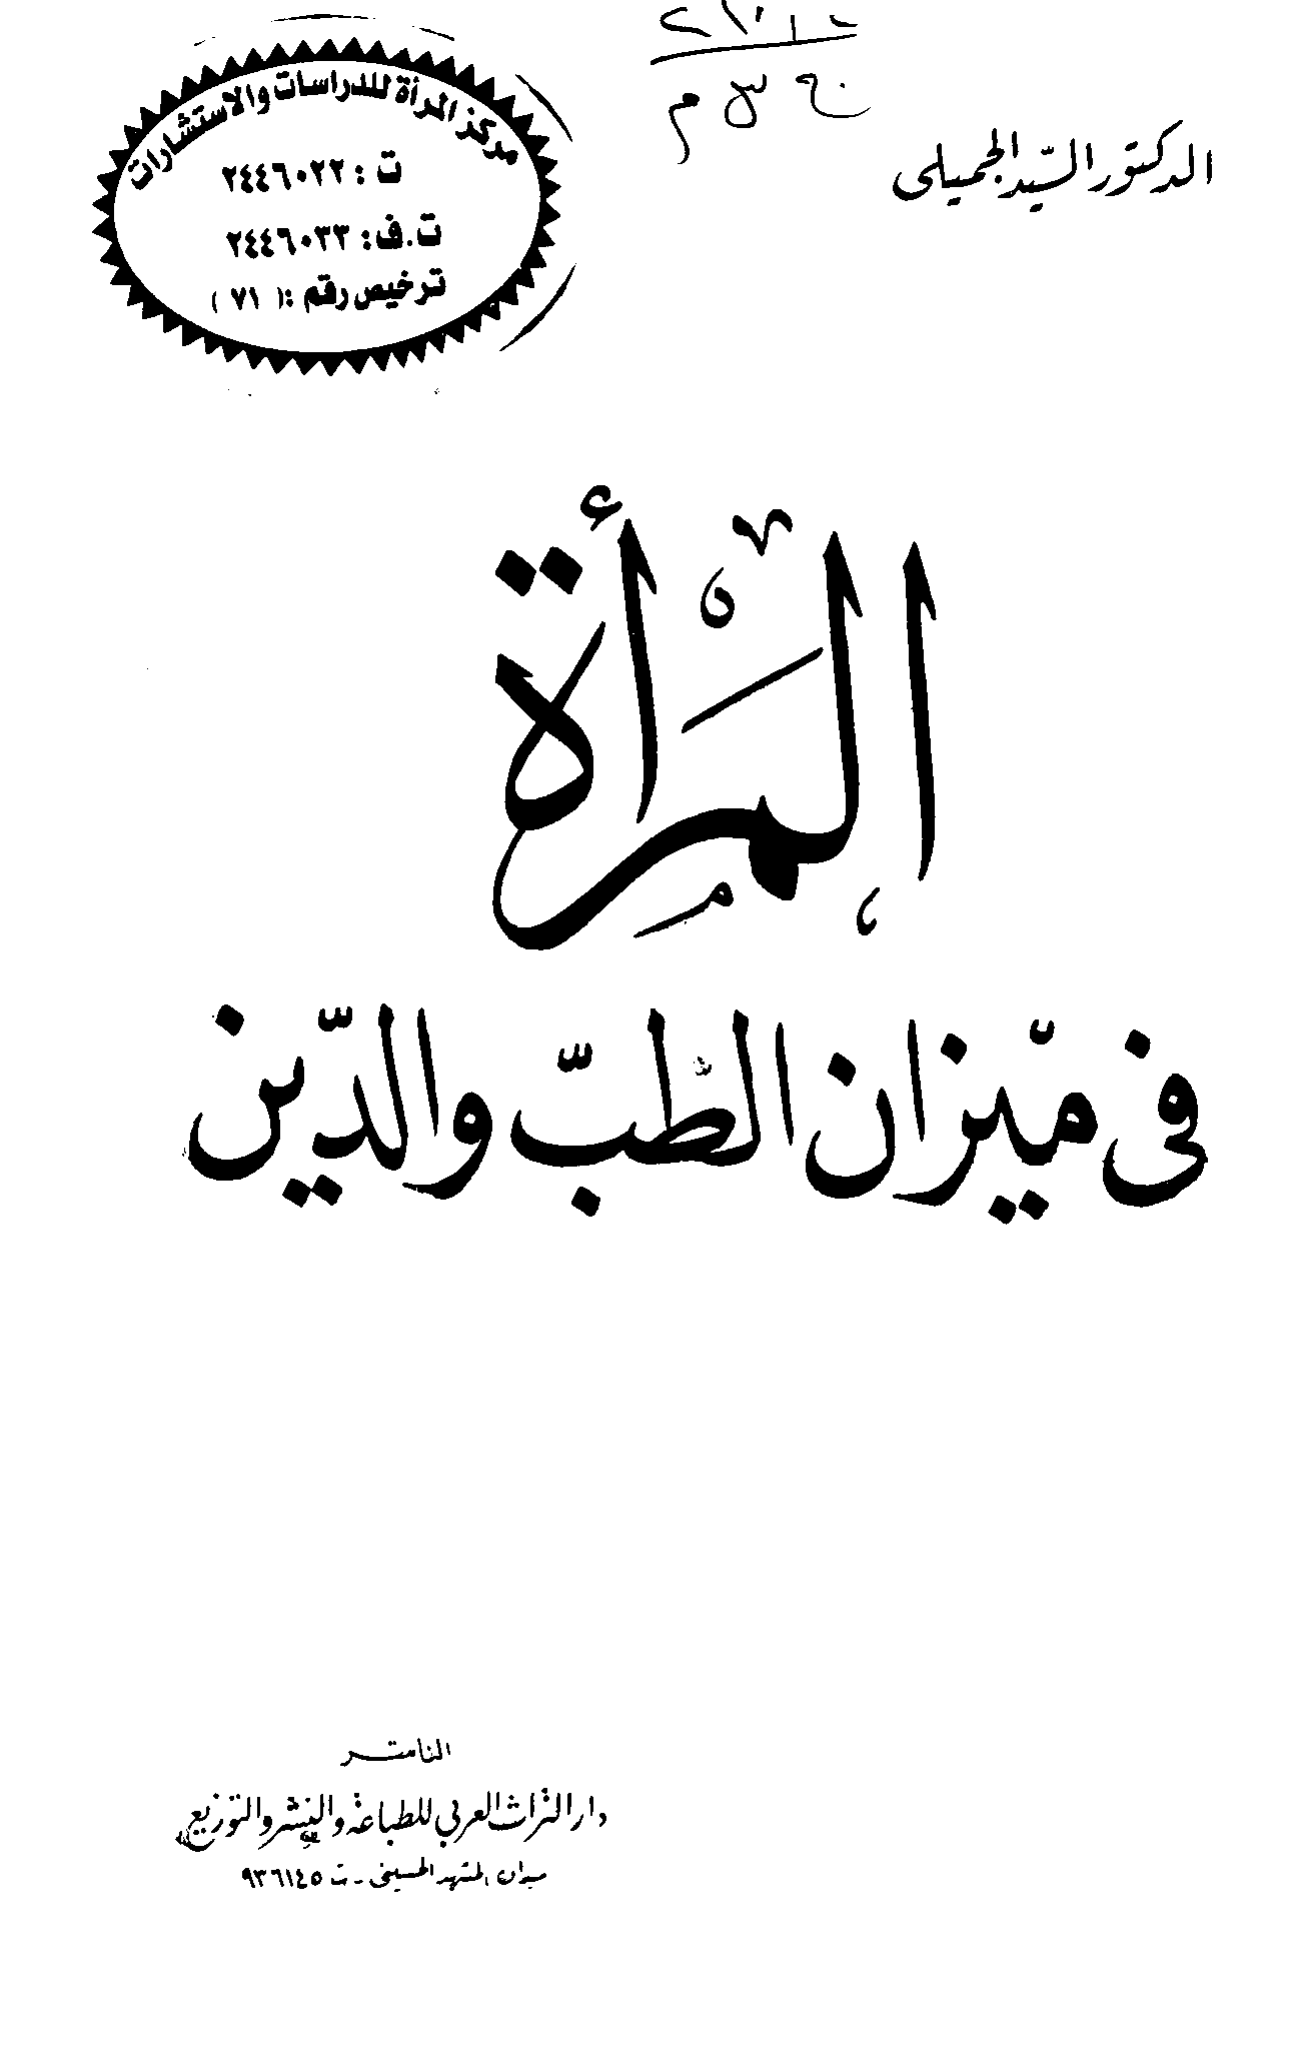 مركز المرأة للدراسات والاستشارات
ت : ٢٤٤٦٠٢٢
ت.ف: ٢٤٤٦٠٣٣
ترخيص رقم :( ٧١ )
الدكتور السّيد الجميلى
المرأة
فى ميّزان الطّبّ والدّين
الناشر
دار التراث العربي للطباعة والنشر والتوزيع
ميدان المشهد الحسينى - ت ٩٣٦١٤٥